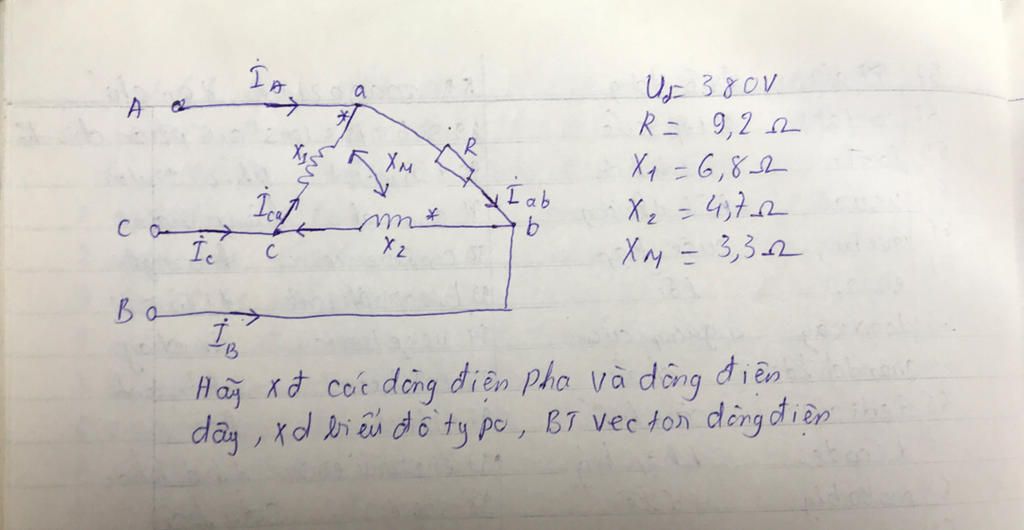 İA
A
a
*
R
X1
XM
İab
İca
*
C
b
İc
C
X2
B
İB
Ud = 380V
R = 9,2 Ω
X1 = 6,8 Ω
X2 = 4,7 Ω
XM = 3,3 Ω
Hãy xđ các dòng điện pha và dòng điện
dây, xd biểu đồ typo, BT vector dòng điện